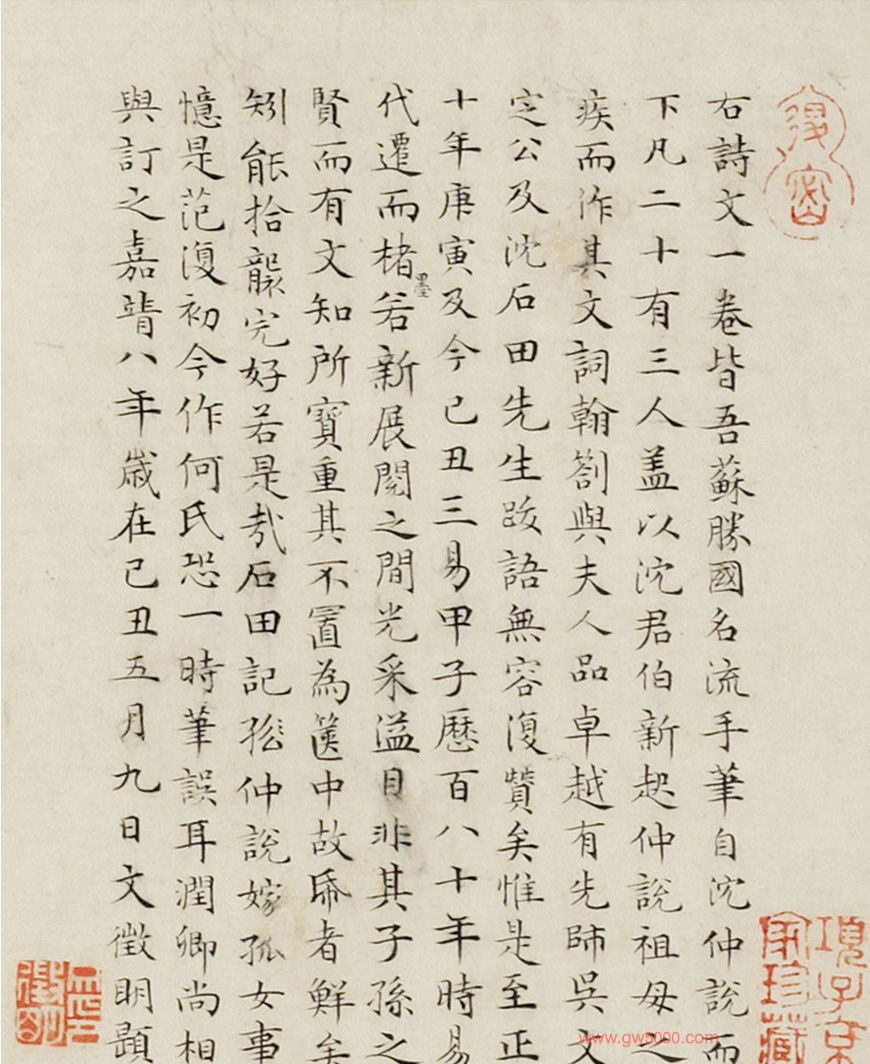 退密
右詩文一卷皆吾蘇勝國名流手筆自沈仲說而
下凡二十有三人盖以沈君伯新起仲說祖母之
疾而作其文詞翰劄與夫人品卓越有先師吳文
定公及沈石田先生跋語無容復贊矣惟是至正
十年庚寅及今己丑三易甲子歷百八十年時易
代遷而楮墨若新展閱之間光采溢目非其子孫之
賢而有文知所寶重其不置為篋中故帋者鮮矣
矧能拾襲完好若是哉石田記孫仲說嫁孤女事
憶是范復初今作何氏恐一時筆誤耳潤卿尚相
與訂之嘉靖八年歲在己丑五月九日文徵明題
項子京家珍藏
www.gw5000.com